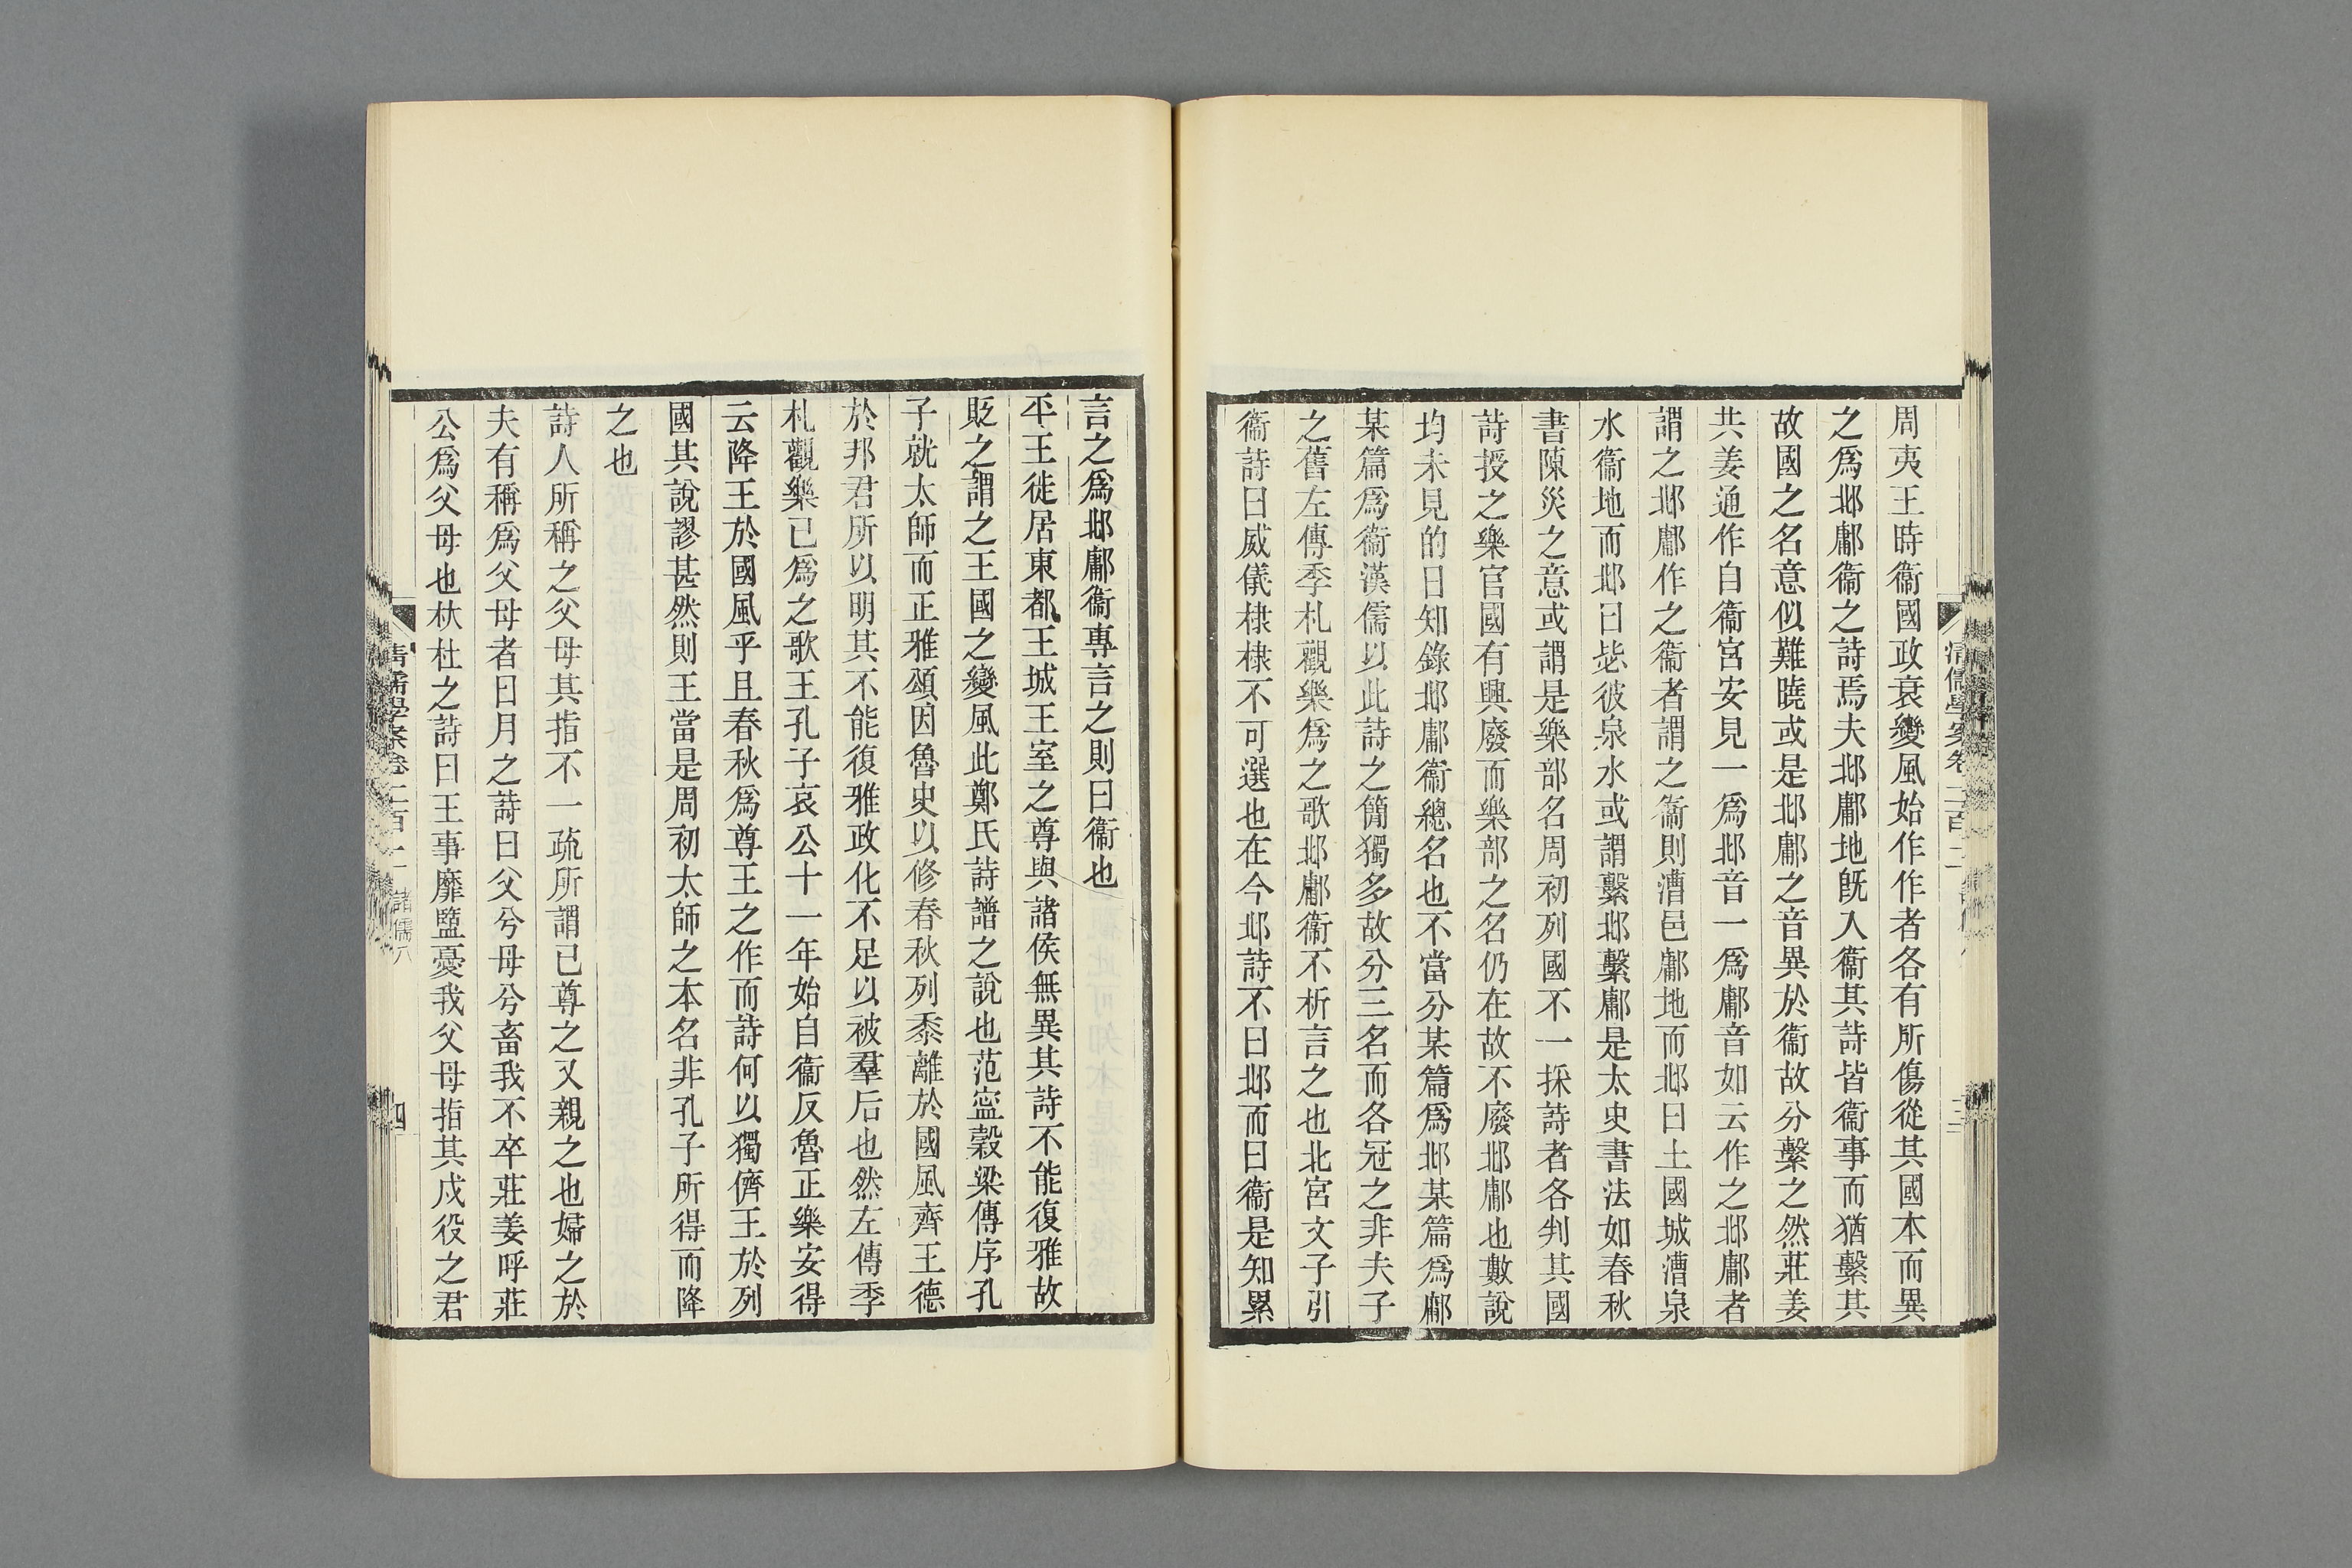 周夷王時衞國政衰變風始作作者各有所傷從其國本而異
之爲邶鄘衞之詩焉夫邶鄘地旣入衞其詩皆衞事而猶繫其
故國之名意似難曉或是邶鄘之音異於衞故分繫之然莊姜
共姜通作自衞宮安見一爲邶音一爲鄘音如云作之邶鄘者
謂之邶鄘作之衞者謂之衞則漕邑鄘地而邶曰土國城漕泉
水衞地而邶曰毖彼泉水或謂繫邶繫鄘是太史書法如春秋
書陳災之意或謂是樂部名周初列國不一採詩者各判其國
詩授之樂官國有興廢而樂部之名仍在故不廢邶鄘也數說
均未見的日知錄邶鄘衞總名也不當分某篇爲邶某篇爲鄘
某篇爲衞漢儒以此詩之簡獨多故分三名而各冠之非夫子
之舊左傳季札觀樂爲之歌邶鄘衞不析言之也北宮文子引
衞詩曰威儀棣棣不可選也在今邶詩不曰邶而曰衞是知累
清儒學案卷二百二
三
言之爲邶鄘衞專言之則曰衞也
平王徙居東都王城王室之尊與諸侯無異其詩不能復雅故
貶之謂之王國之變風此鄭氏詩譜之說也范寍穀梁傳序孔
子就太師而正雅頌因魯史以修春秋列黍離於國風齊王德
於邦君所以明其不能復雅政化不足以被羣后也然左傳季
札觀樂已爲之歌王孔子哀公十一年始自衞反魯正樂安得
云降王於國風乎且春秋爲尊王之作而詩何以獨儕王於列
國其說謬甚然則王當是周初太師之本名非孔子所得而降
之也
詩人所稱之父母其指不一疏所謂已尊之又親之也婦之於
夫有稱爲父母者日月之詩曰父兮母兮畜我不卒莊姜呼莊
公爲父母也杕杜之詩曰王事靡盬憂我父母指其戍役之君
清儒學案卷二百二 諸儒八
四